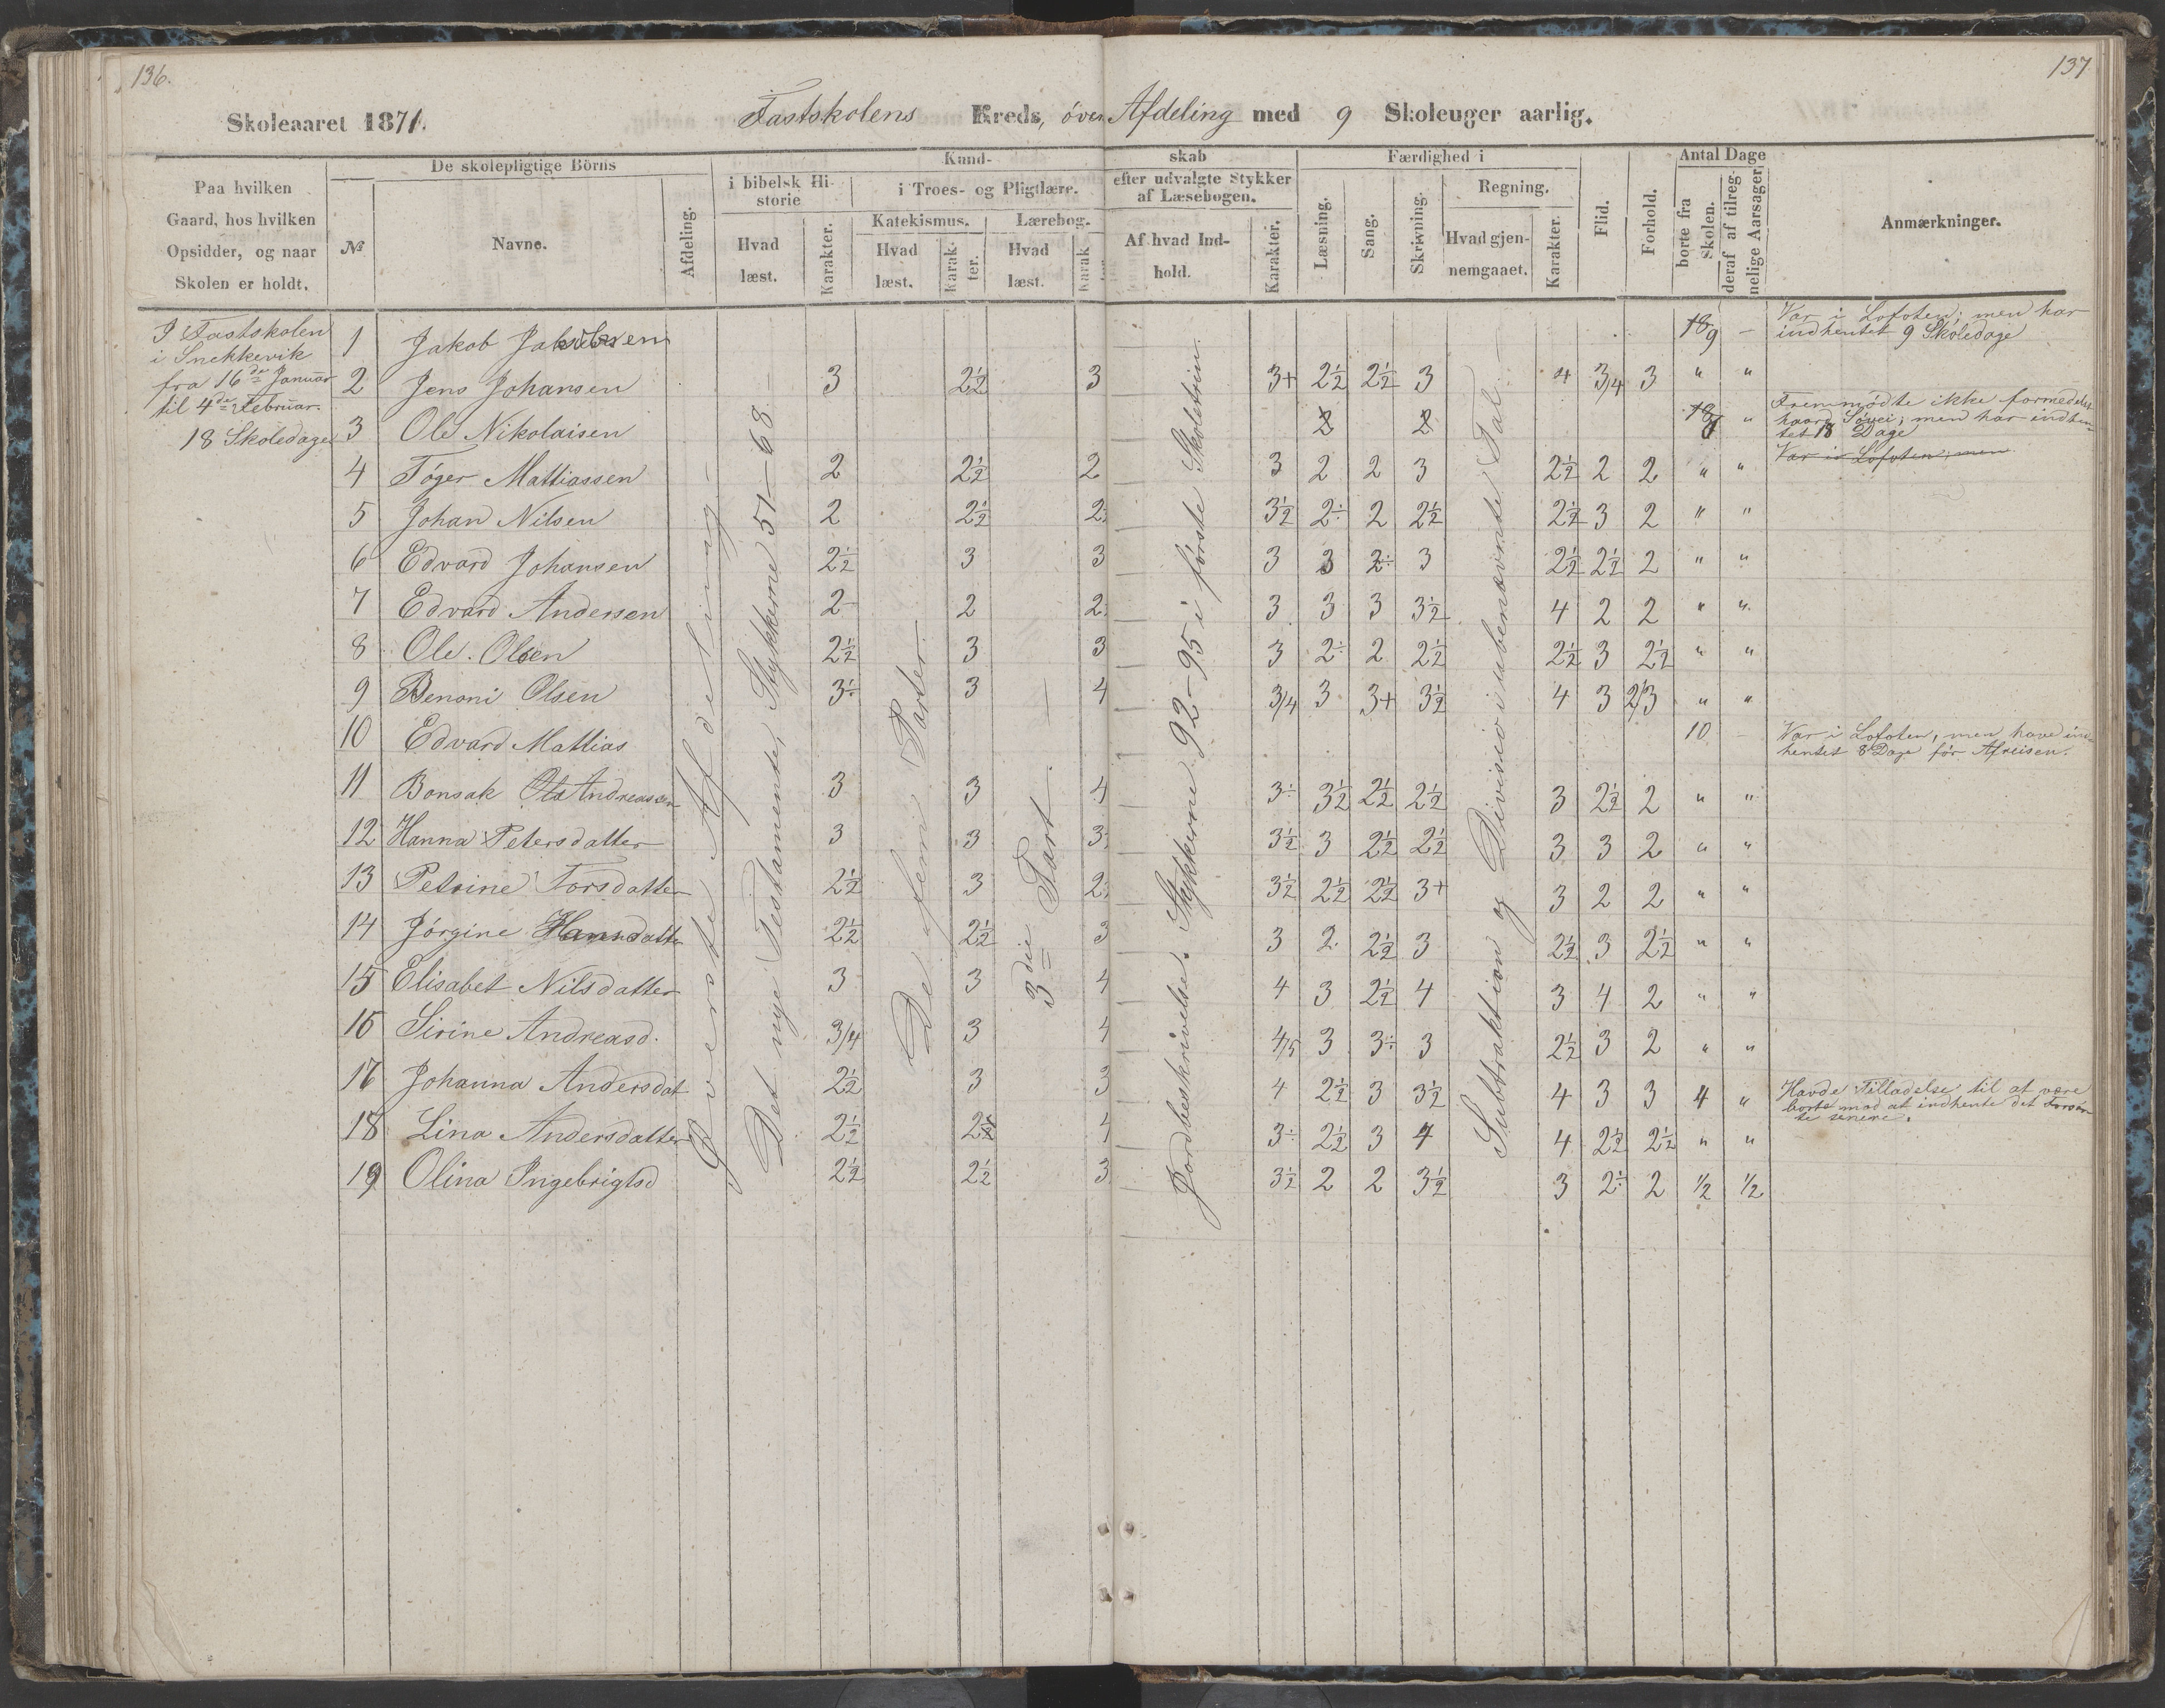 136.
137
Skoleaaret 1871.
Fastskolens Kreds, över Afdeling med 9 Skoleuger aarlig.
Paa hvilken Gaard, hos hvilken Opsidder, og naar Skolen er holdt.
De skolepligtige Börns
№
Navne.
Afdeling.
Kund-
skab
i bibelsk Hi-
storie
Hvad læst.
Karakter.
i Troes- og Pligtlære.
Katekismus.
Hvad læst.
Karak-
ter.
Lærebog.
Hvad læst.
Karak
efter udvalgte Stykker
af Læsebogen.
Af hvad Ind-
hold.
Karakter.
Færdighed i
Læsning.
Sang.
Skrivning.
Regning.
Hvad gjen-
nemgaaet.
Karakter.
Flid.
Forhold.
Antal Dage
borte fra Skolen.
deraf af tilreg-
nelige Aarsager.
Anmærkninger.
I Fastskolen
i Snekkevik
fra 16de Januar
til 4de Februar.
18 Skoledage
Øverste Afdeling
Det nye Testamente, Stykkerne 51-68
De fem Parter
3die Part
Jordbeskrivelse. Stykkerne 92-95 i første Skoletrin.
Subtraktion og Division i ubenævnte Tal
1 Jakob Jakobsen 18 9 – Var i Lofoten; men har
indhentet 9 Skoledage
2 Jens Johansen 3 2½ 3 3+ 2½ 2½ 3 4 3/4 3 " "
3 Ole Nikolaisen 2 2 18 " Fremmödte ikke formedelst
haard Søvei; men har indhen-
tet 18 Dage
4 Töger Mattiassen 2 2½ 2 3 2 2 3 2½ 2 2 " " Var i Lofoten; men
5 Johan Nilsen 2 2½ 2 3½ 2÷ 2 2½ 2½ 3 2 " "
6 Edvard Johansen 2½ 3 3 3 3 2÷ 3 2½ 2½ 2 " "
7 Edvard Andersen 2 2 2 3 3 3 3½ 4 2 2 " "
8 Ole Olsen 2½ 3 3 3 2÷ 2 2½ 2½ 3 2½ " "
9 Benoni Olsen 3÷ 3 4 3/4 3 3+ 3½ 4 3 2/3 " "
10 Edvard Mattias 10 – Var i Lofoten, men have ind-
hentet 8 Dage för Afreisen.
11 Bonsak Ola Andreassen 3 3 4 3÷ 3½ 2½ 2½ 3 2½ 2 " "
12 Hanna Petersdatter 3 3 3 3½ 3 2½ 2½ 3 3 2 " "
13 Petrine Torsdatter 2½ 3 2 3½ 2½ 2½ 3+ 3 2 2 " "
14 Jörgine Hansdatter 2½ 2½ 3 3 2 2½ 3 2½ 3 2½ " "
15 Elisabet Nilsdatter 3 3 4 4 3 2½ 4 3 4 2 " "
16 Sirine Andreasd. 3/4 3 4 4/5 3 3÷ 3 2½ 3 2 " "
17 Johanna Andersdat 2½ 3 3 4 2½ 3 3½ 4 3 3 4 " Havde Tilladelse til at være
borte mod at indhente det Forsöm-
te senere.
18 Lina Andersdatter 2½ 2½ 4 3÷ 2½ 3 4 4 2½ 2½ " "
19 Olina Ingebrigtsd 2½ 2½ 3 3½ 2 2 3½ 3 2÷ 2 ½ ½